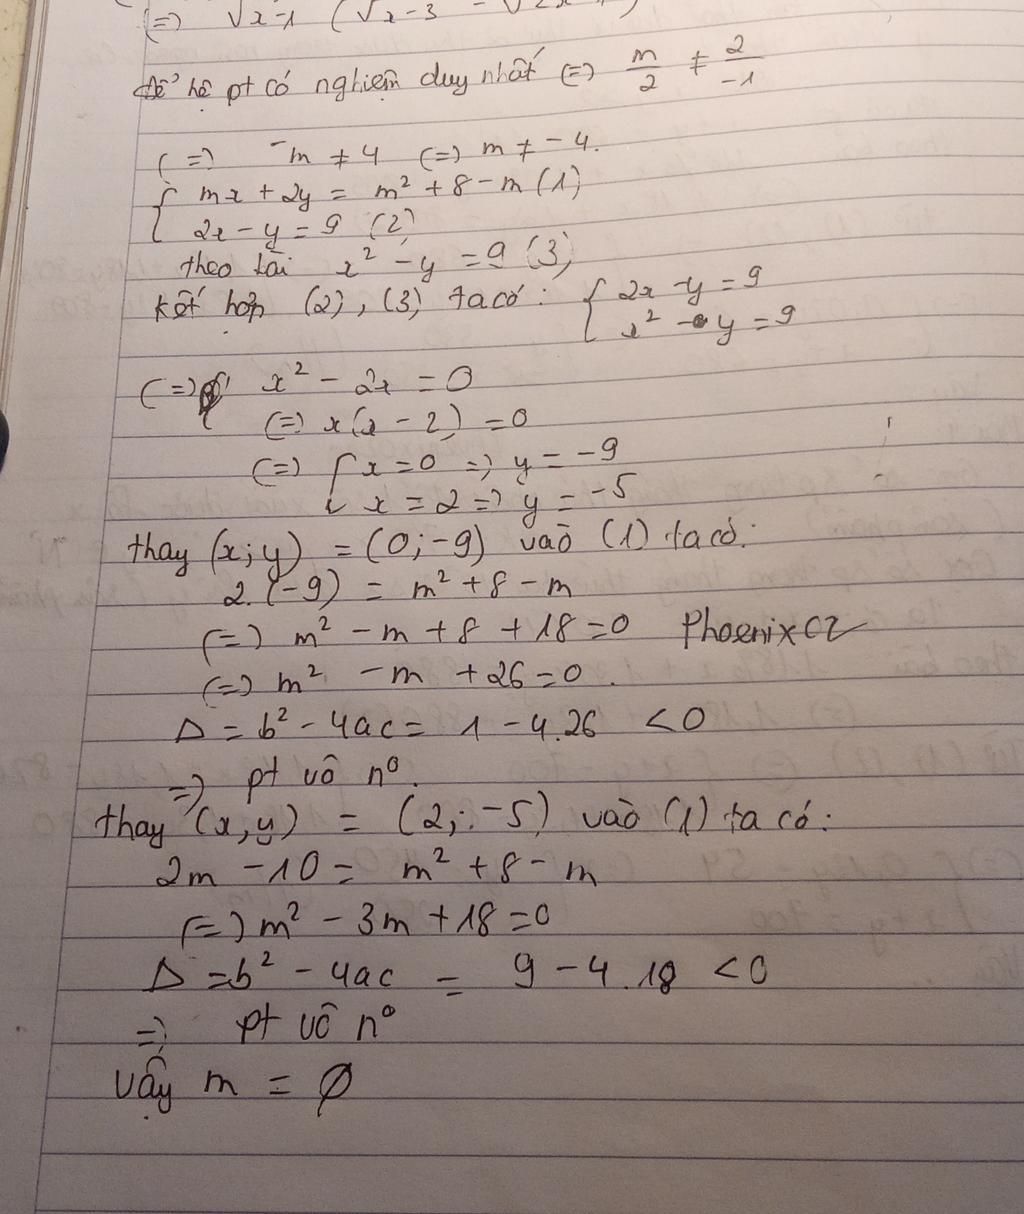 (=) √x-1 (√x-3 - √2x
Để hệ pt có nghiệm duy nhất (=) m/2 ≠ 2/-1
(=) -m ≠ 4 (=) m ≠ -4.
{ mx + 2y = m² + 8 - m (1)
2x - y = 9 (2)
theo bài x² - y = 9 (3)
kết hợp (2), (3) ta có : { 2x - y = 9
x² - y = 9
(=) x² - 2x = 0
(=) x(x - 2) = 0
(=) [ x = 0 => y = -9
x = 2 => y = -5
thay (x;y) = (0;-9) vào (1) ta có:
2.(-9) = m² + 8 - m
(=) m² - m + 8 + 18 = 0 PhoenixCZ
(=) m² - m + 26 = 0.
Δ = b² - 4ac = 1 - 4.26 < 0
=> pt vô n⁰.
thay (x,y) = (2;-5) vào (1) ta có:
2m - 10 = m² + 8 - m
(=) m² - 3m + 18 = 0
Δ = b² - 4ac = 9 - 4.18 < 0
=> pt vô n⁰
vậy m = ∅